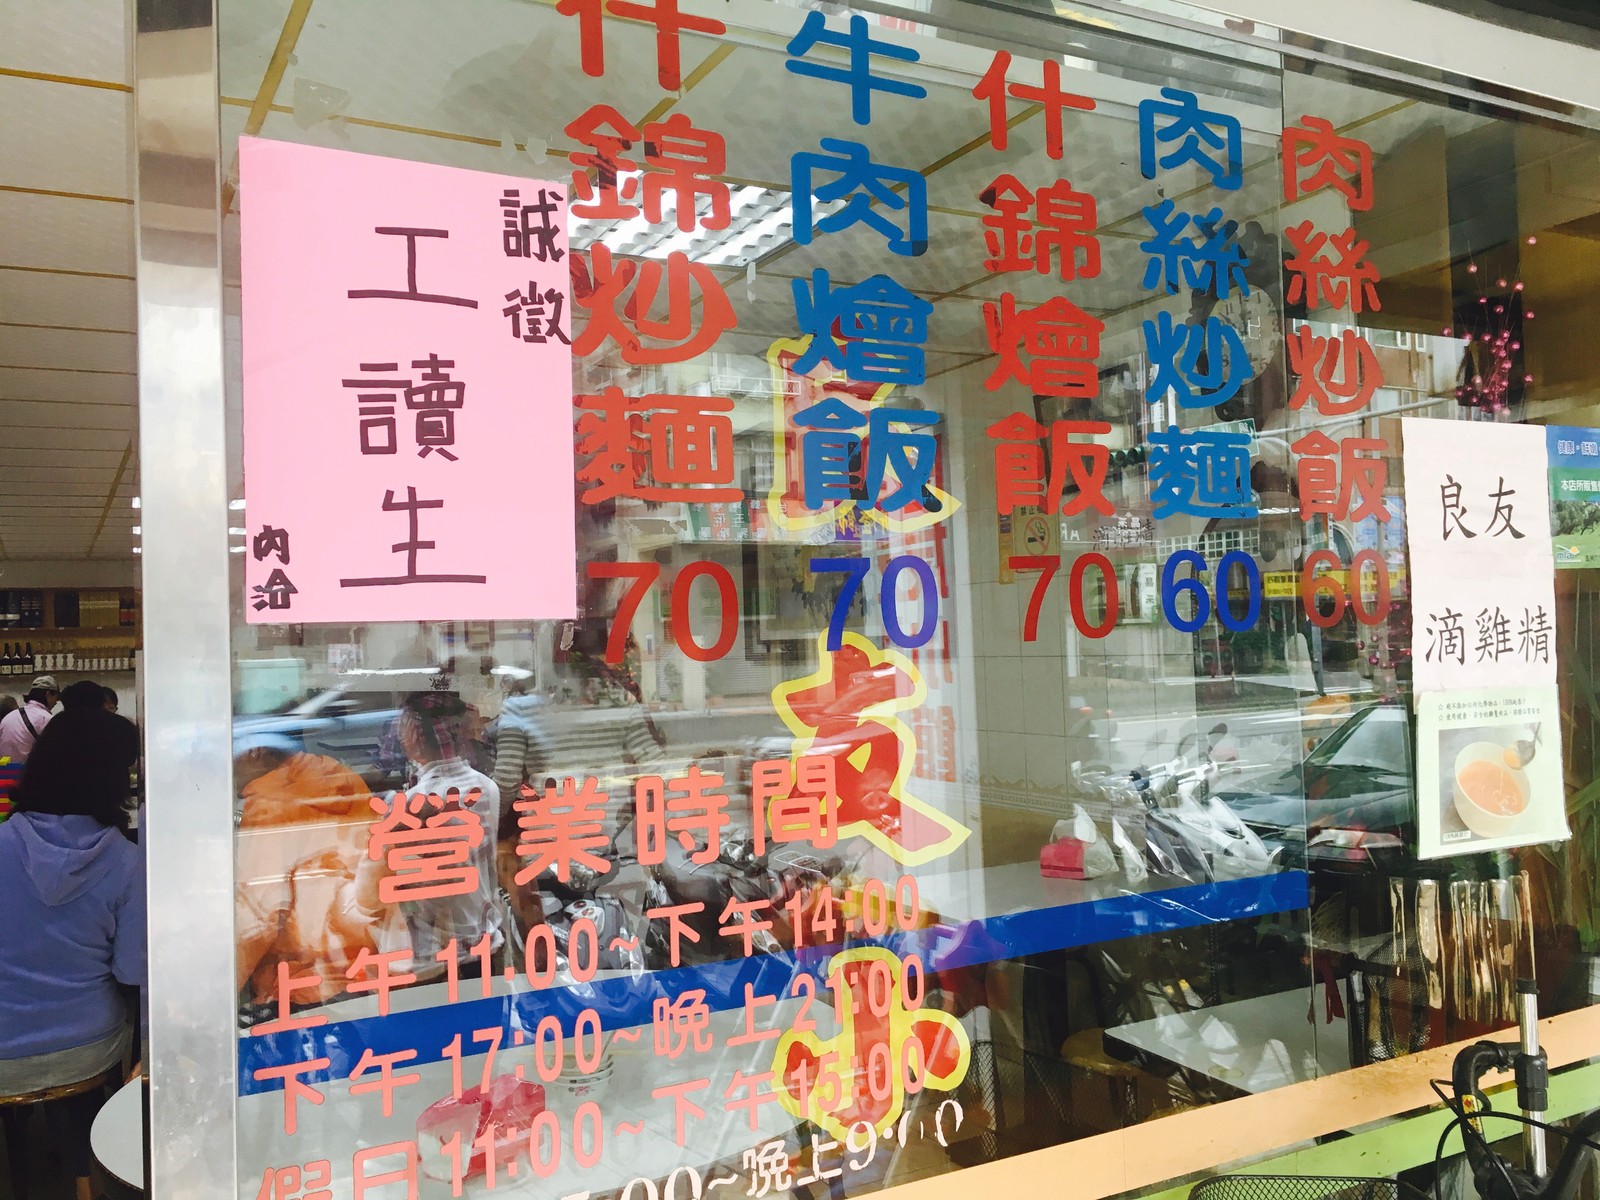 誠徵
工讀生
內洽
什錦炒麵70
牛肉燴飯70
什錦燴飯70
肉絲炒麵60
肉絲炒飯60
營業時間
上午11:00~下午14:00
下午17:00~晚上21:00
假日11:00~下午15:00
:00~晚上9:00
友
小
良友
滴雞精
健康
本店所販售